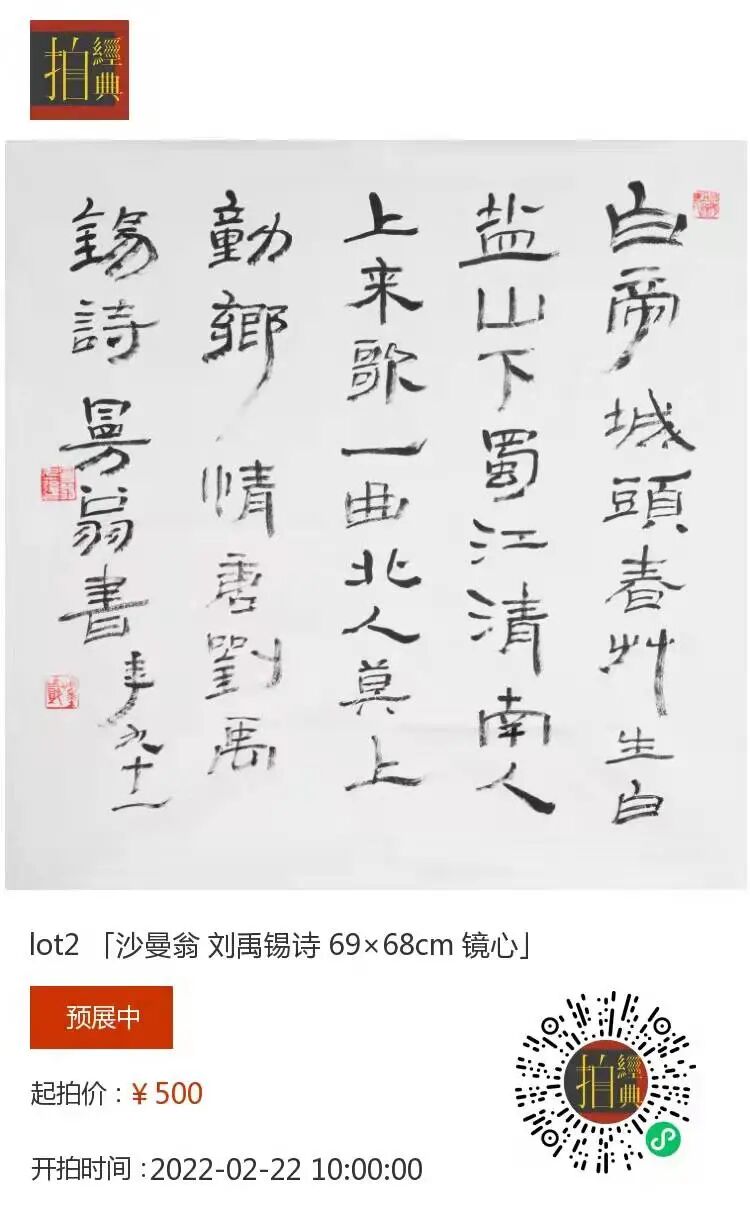 經典
拍
白帝城頭春艸生白
盐山下蜀江清南人
上来歌一曲北人莫上
動鄉情唐劉禹
錫詩曼翁書年九十一
lot2 「沙曼翁 刘禹锡诗 69×68cm 镜心」
预展中
起拍价：¥500
开拍时间：2022-02-22 10:00:00
經典
拍